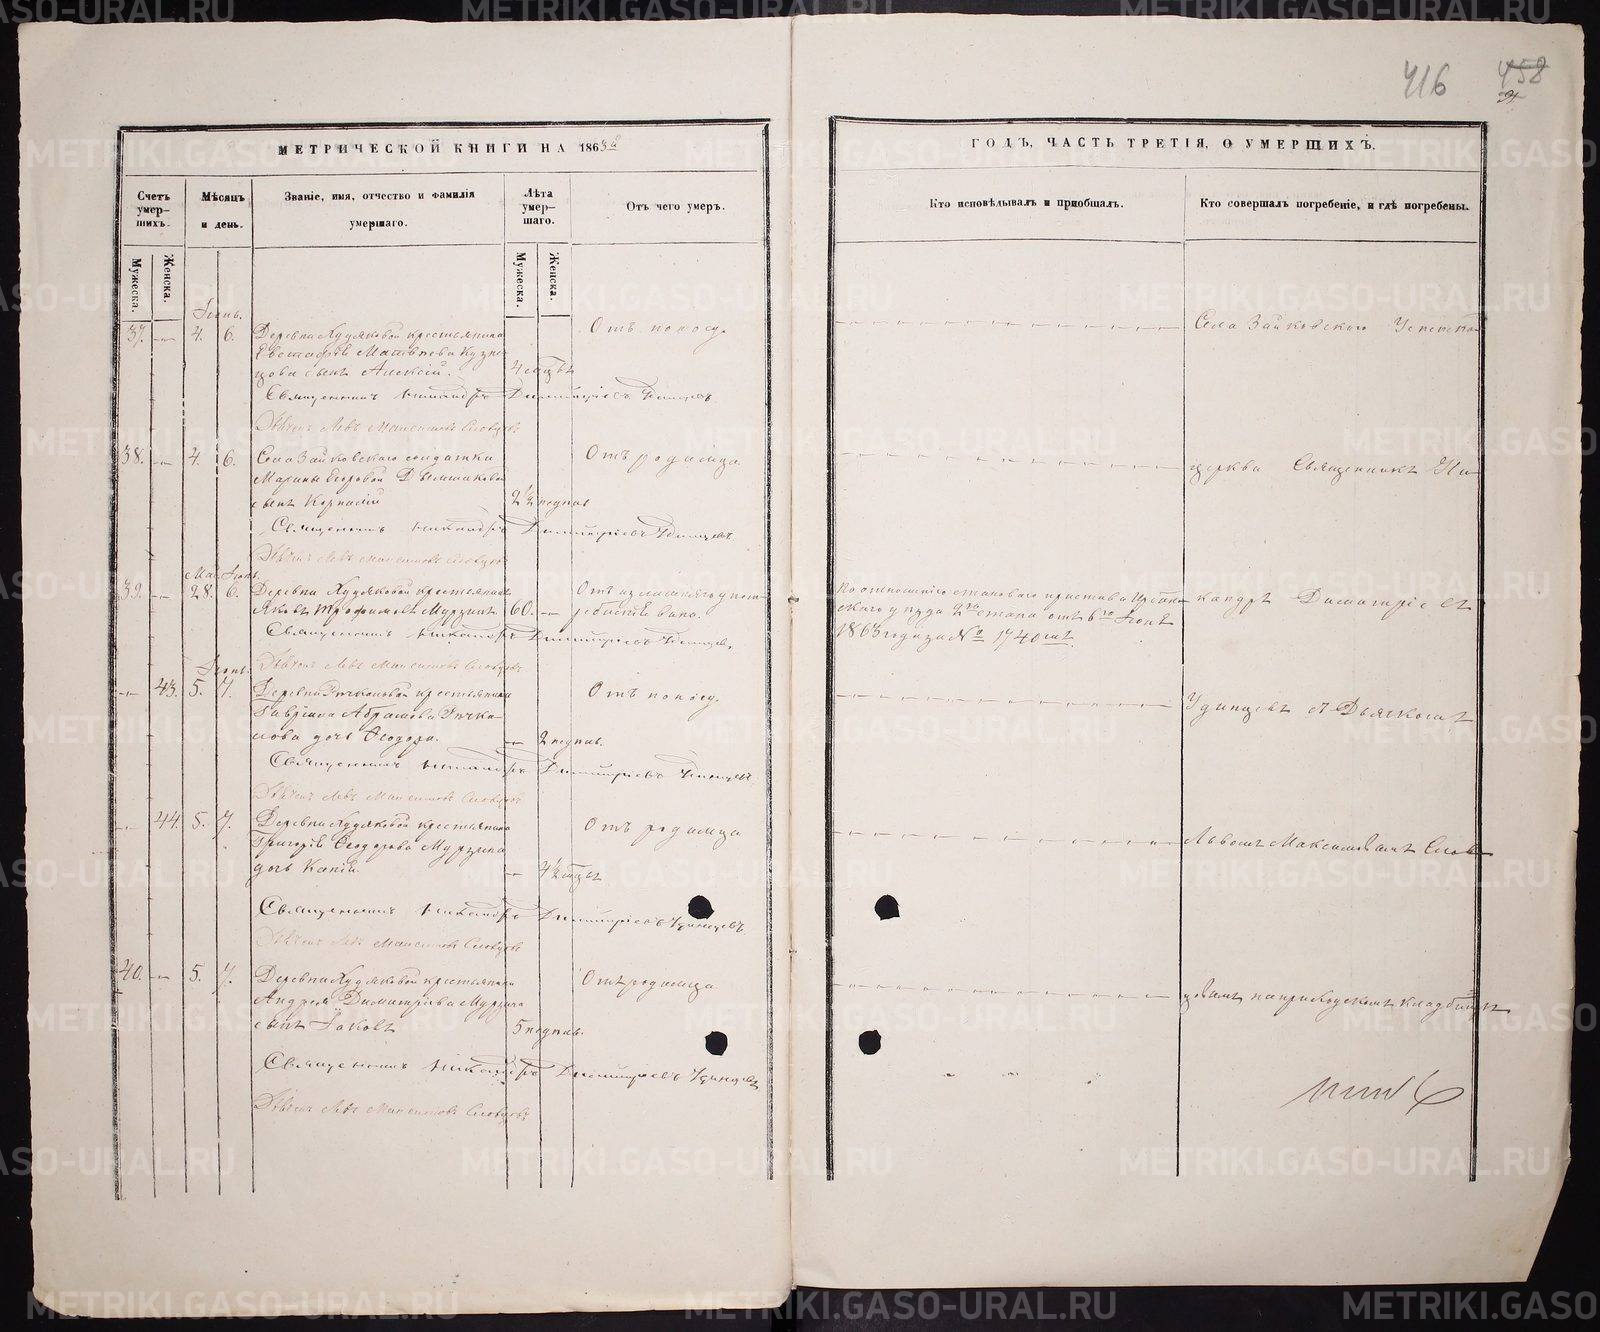 416 458
МЕТРИЧЕСКОЙ КНИГИ НА 1863й
ГОДЪ, ЧАСТЬ ТРЕТІЯ, О УМЕРШИХЪ.
Счетъ умер-шихъ.
Мѣсяцъ и день.
Званіе, имя, отчество и фамилія
умершаго.
Лѣта умер-шаго.
Отъ чего умеръ.
Кто исповѣдывалъ и пріобщалъ.
Кто совершалъ погребеніе, и гдѣ погребены.
Мужеска.
Женска.
Мужеска.
Женска.
Іюнь.
37. — 4. 6. Деревни Худяковой крестьянина
Евстафія Матвѣева Кузне
цова сынъ Алексій. 4 мцвъ
Отъ поносу.
Села Зайковскаго Успенской
Священникъ Никандръ Димитріевъ Удинцевъ.
Дьячекъ Левъ Максимовъ Словцовъ
38. — 4. 6. Села Зайковскаго солдатки
Марины Егоровой
сынъ Корнилій 2½ недѣли
Отъ родимца
церкви Священникъ Ни
Священникъ Никандръ Димитріевъ Удинцевъ.
Дьячекъ Левъ Максимовъ Словцовъ
Май. Іюнь.
39. — 28. 6. Деревни Худяковой крестьянинъ
Яковъ Трофимовъ Мурзинъ 60. —
Отъ излишняго упот
ребленія вина.
По отношенію становаго пристава Ирбит
скаго уѣзда 2го стана отъ 6го Іюня
1863 года за № 1740мъ.
кандръ Димитріевъ
Священникъ Никандръ Димитріевъ Удинцевъ.
Дьячекъ Левъ Максимовъ Словцовъ
Іюнь.
— 43. 5. 7. Деревни Речкаловой крестьянина
Гавріила Абрамова Речка
лова дочь Ѳеодора. — 2 недѣль.
Отъ поносу.
Удинцевъ съ Дьячкомъ
Священникъ Никандръ Димитріевъ Удинцевъ
Дьячекъ Левъ Максимовъ Словцовъ
— 44. 5. 7. Деревни Худяковой крестьянина
Григорія Ѳеодорова Мурзина
дочь — 4½ мцвъ
Отъ родимца
Львомъ Максимовымъ Слов
Священникъ Никандръ Димитріевъ Удинцевъ.
Дьячекъ Левъ Максимовъ Словцовъ
40. — 5. 7. Деревни Худяковой крестьянина
Андрея Димитріева Мурзина
сынъ Іаковъ 5 недѣль.
Отъ родимца
цовымъ на приходскомъ кладбищѣ
Священникъ Никандръ Димитріевъ Удинцевъ
Дьячекъ Левъ Максимовъ Словцовъ
METRIKI.GASO-URAL.RU